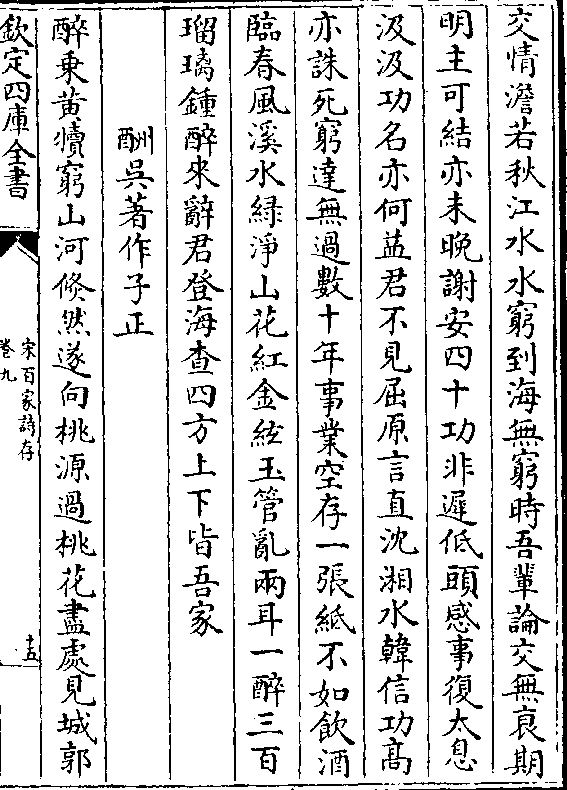 交情澹若秋江水水窮到海無窮時吾輩論交無衰期
明主可結亦未晚謝安四十功非遲低頭感事復太息
汲汲功名亦何益君不見屈原言直沈湘水韓信功高
亦誅死窮達無過數十年事業空存一張紙不如飲酒
臨春風溪水緑淨山花紅金絃玉管亂兩耳一醉三百
瑠璃鍾醉來辭君登海查四方上下皆吾家
酬吳著作子正
醉乗黄犢窮山河倐然遂向桃源過桃花盡處見城郭
欽定四庫全書
宋百家詩存
卷九
十五